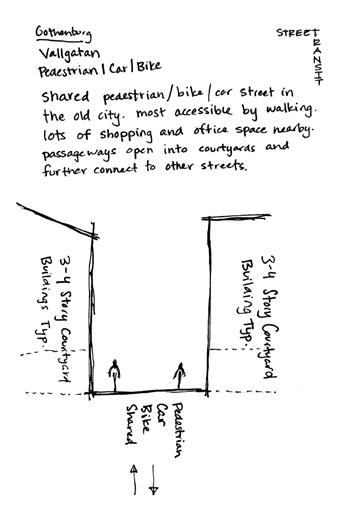 Gothenburg
Vallgatan
Pedestrian | Car | Bike
STREET
TRANSIT
shared pedestrian/bike/car street in
the old city. most accessible by walking.
lots of shopping and office space nearby.
passageways open into courtyards and
further connect to other streets.
3-4 Story Courtyard
Buildings Typ.
3-4 Story Courtyard
Building Typ.
Pedestrian
Car
Bike
Shared